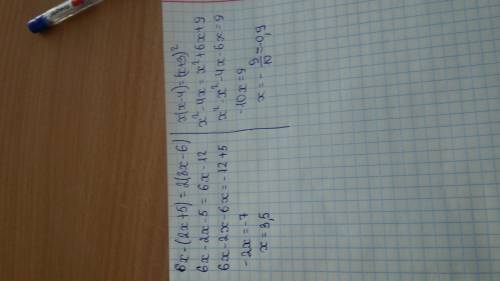 6x-(2x+5)=2(3x-6)
6x-2x-5=6x-12
6x-2x-6x=-12+5
-2x=-7
x=3,5
x(x-4)=(x+3)²
x²-4x=x²+6x+9
x²-x²-4x-6x=9
-10x=9
x=-9/10=-0,9